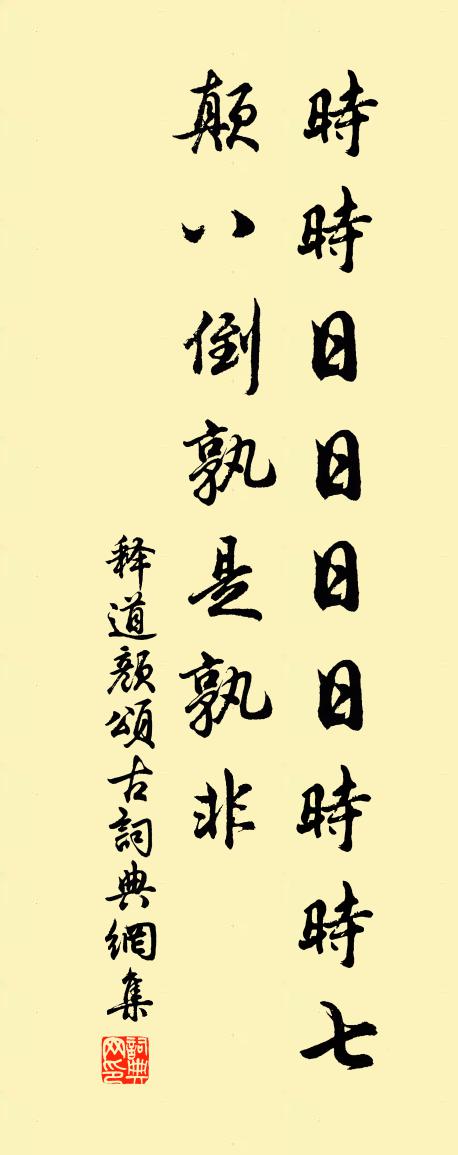 時時日日日日時時七
顛八倒孰是孰非
释道颜頌古詞典網集
詞典网印